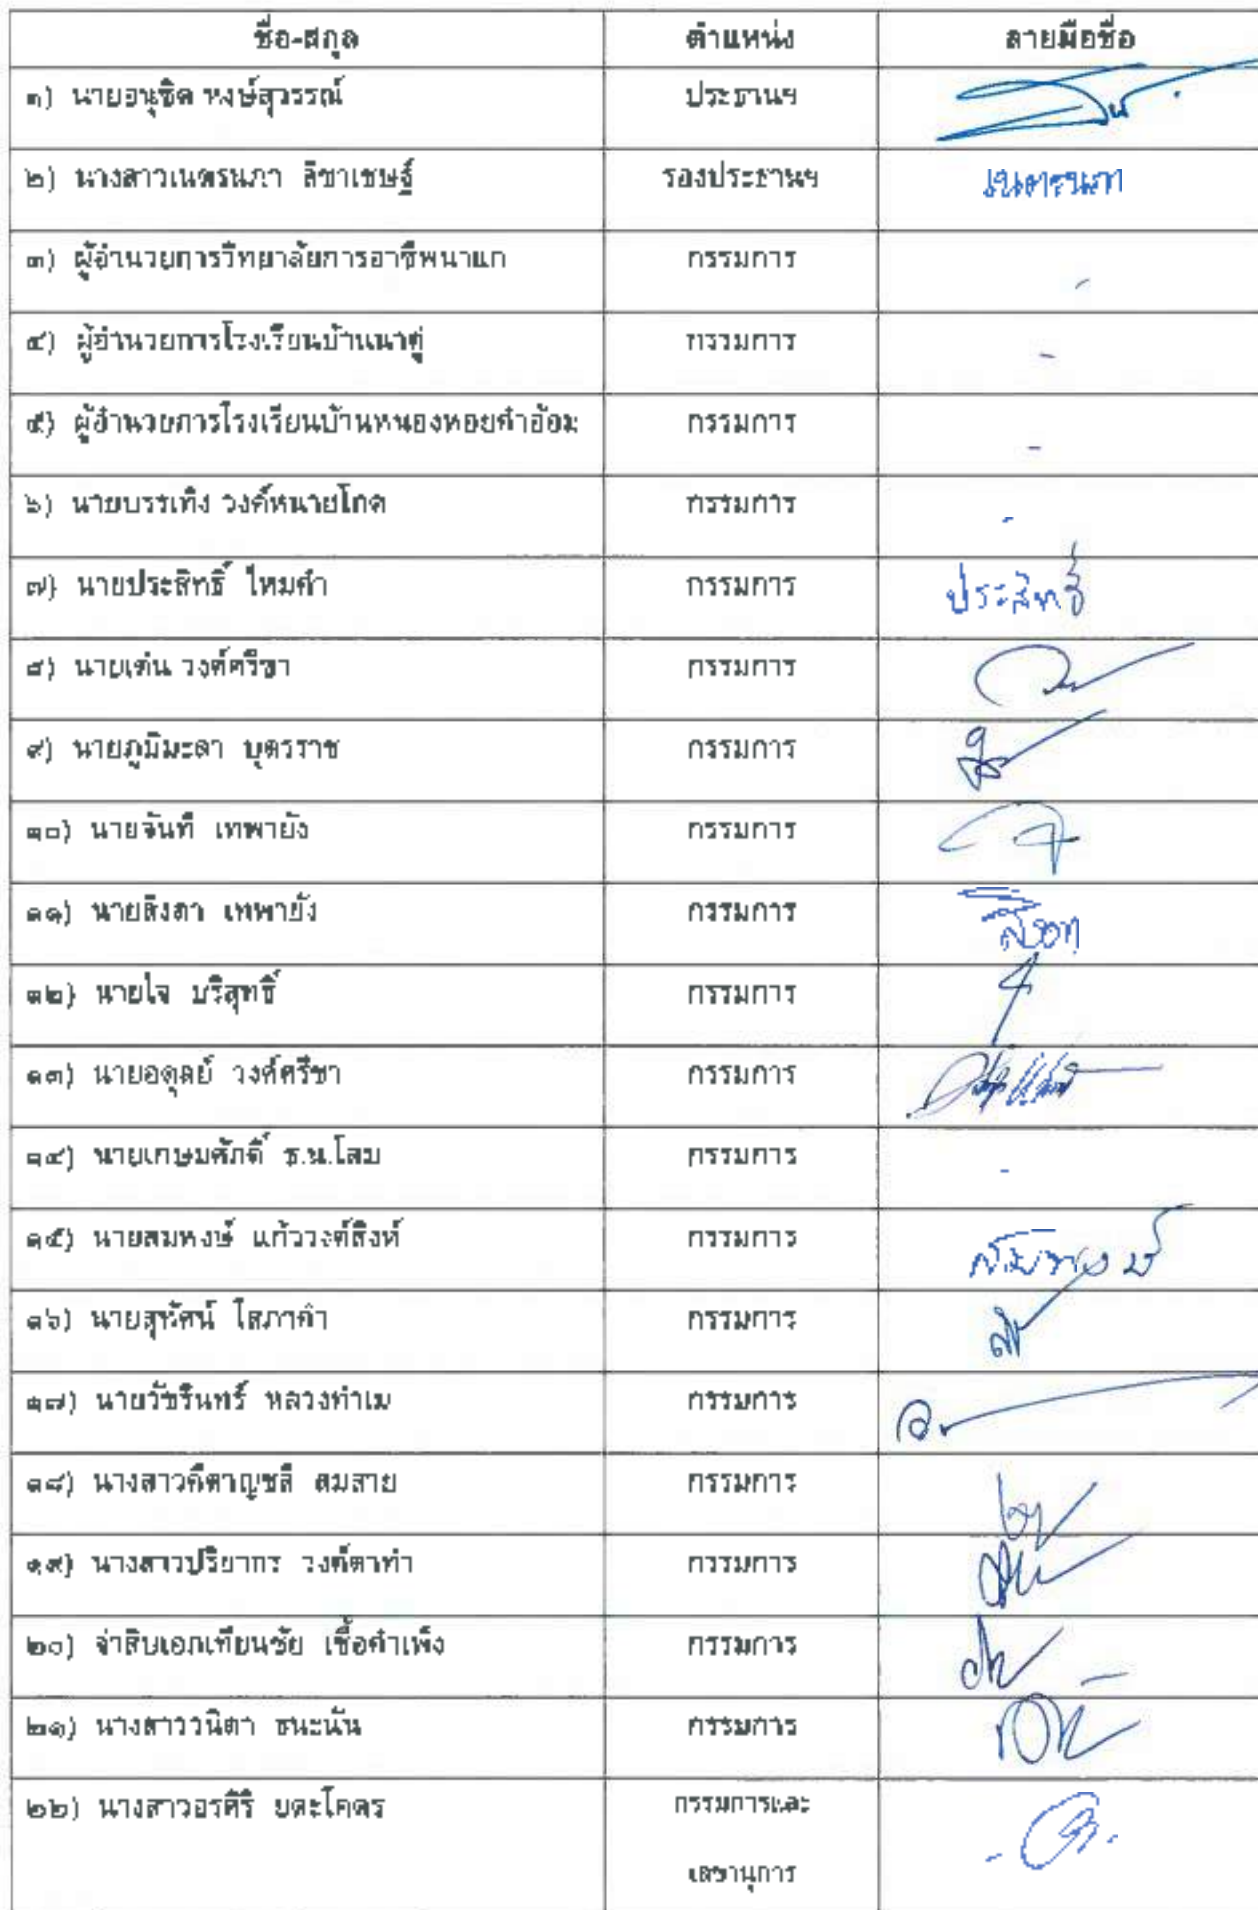 ชื่อ-สกุล ตำแหน่ง ลายมือชื่อ
๑) นายอนุชิต หงษ์สุวรรณ์ ประธานฯ
๒) นางสาวเนตรนภา ลิขาเชษฐ์ รองประธานฯ เนตรนภา
๓) ผู้อำนวยการวิทยาลัยการอาชีพนาแก กรรมการ -
๔) ผู้อำนวยการโรงเรียนบ้านนาคู่ กรรมการ -
๕) ผู้อำนวยการโรงเรียนบ้านหนองหอยคำอ้อม กรรมการ -
๖) นายบรรเทิง วงค์หนายโกด กรรมการ -
๗) นายประสิทธิ์ ไหมคำ กรรมการ ประสิทธิ์
๘) นายเต่น วงค์ศรีชา กรรมการ
๙) นายภูมิมะลา บุตรราช กรรมการ
๑๐) นายจันที เทพายัง กรรมการ
๑๑) นายสิงดา เทพายัง กรรมการ
๑๒) นายใจ บริสุทธิ์ กรรมการ
๑๓) นายอดุลย์ วงค์ศรีชา กรรมการ
๑๔) นายเกษมศักดิ์ ธ.น.โสม กรรมการ -
๑๕) นายสมหงษ์ แก้ววงค์สิงห์ กรรมการ สมหงษ์
๑๖) นายสุทัศน์ โสภาคำ กรรมการ
๑๗) นายวัชรินทร์ หลวงทำเม กรรมการ
๑๘) นางสาวคีตาญชลี สมสาย กรรมการ
๑๙) นางสาวปริยากร วงค์ตาทำ กรรมการ
๒๐) จ่าสิบเอกเทียนชัย เชื้อคำเพ็ง กรรมการ
๒๑) นางสาววนิดา ธนะนัน กรรมการ
๒๒) นางสาวอรศิริ ยตะโคตร กรรมการและ
เลขานุการ